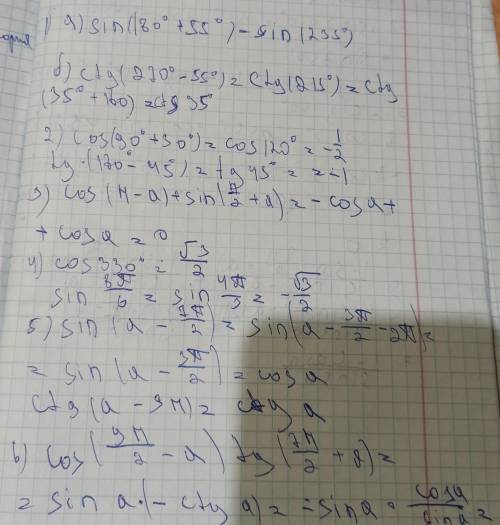 1) a) sin(180° + 55°) - sin(235°)
б) ctg(270° - 55°) = ctg(215°) = ctg
(35° + 180) = ctg 35°
2) cos(90° + 30°) = cos 120° = - 1/2
tg (180° - 45°) = tg 45° = = -1
3) cos (π - a) + sin(π/2 + a) = - cos a +
+ cos a = 0
4) cos 330° = √3/2
sin 8π/6 = sin 4π/3 = - √3/2
5) sin(a - 7π/2) = sin(a - 3π/2 - 2π) =
= sin(a - 3π/2) = cos a
ctg (a - 9π) = ctg a
6) cos(9π/2 - a) tg(7π/2 + a) =
= sin a · (- ctg a) = - sin a · cos a / sin a =